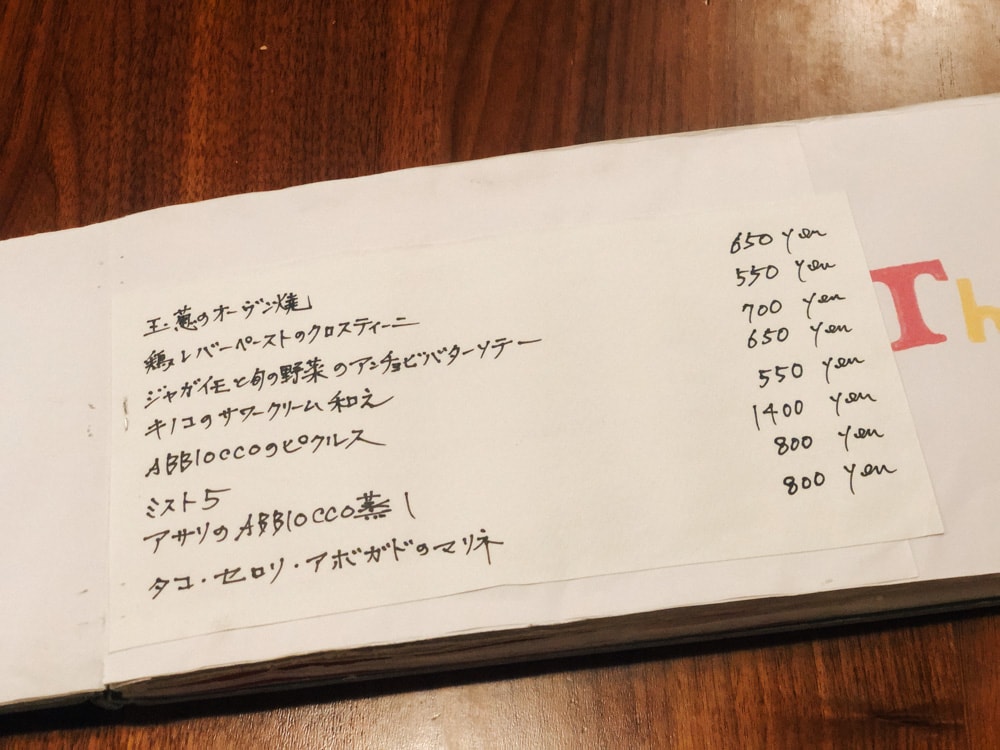 玉葱のオーヴン焼 650 yen
鶏レバーペーストのクロスティーニ 550 yen
ジャガイモと旬の野菜のアンチョビバターソテー 700 yen
キノコのサワークリーム和え 650 yen
ABBIOCCOのピクルス 550 yen
ミスト5 1400 yen
アサリのABBIOCCO蒸し 800 yen
タコ・セロリ・アボガドのマリネ 800 yen
Th